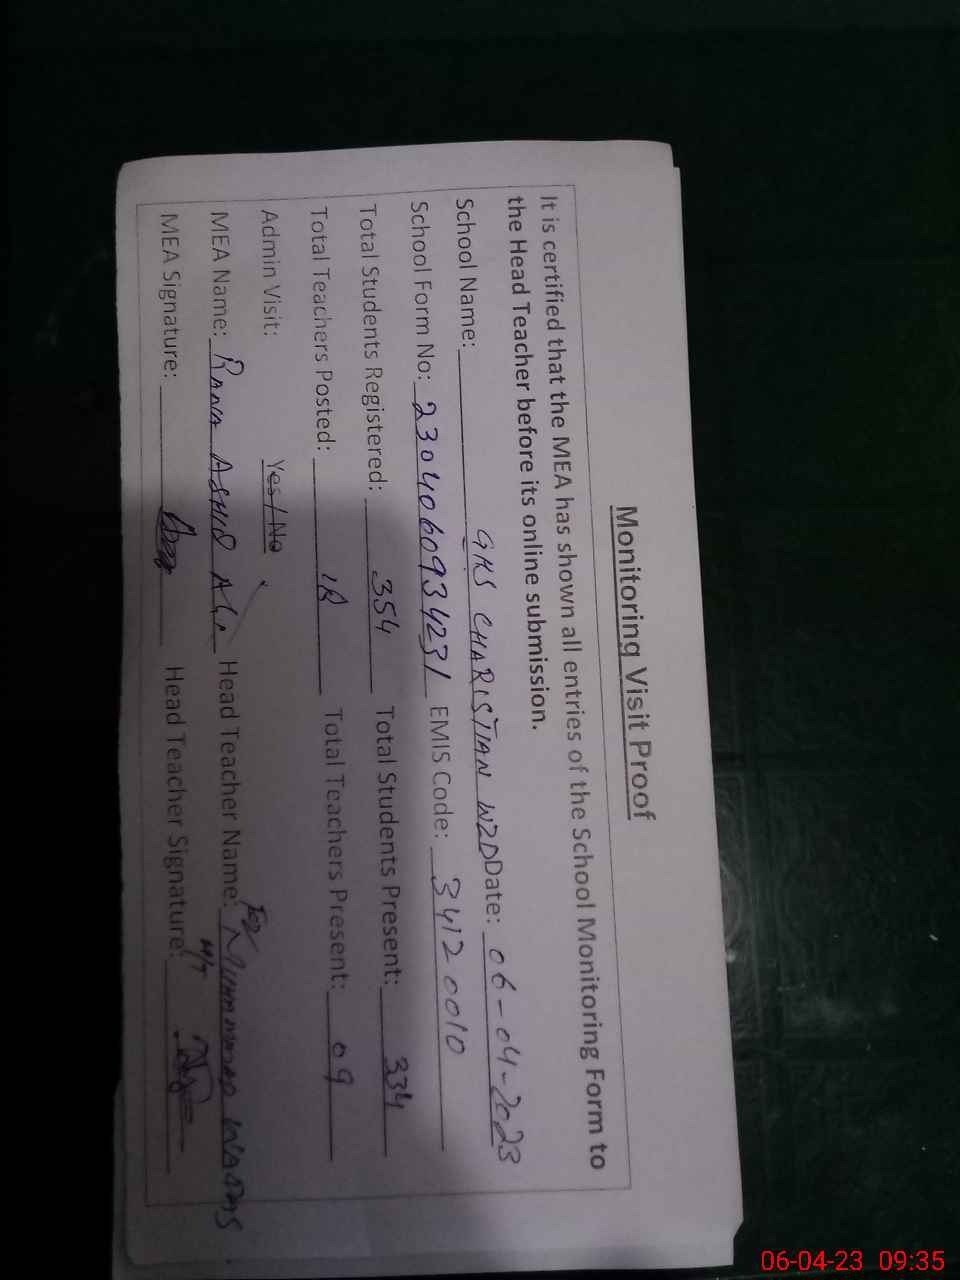 Monitoring Visit Proof
It is certified that the MEA has shown all entries of the School Monitoring Form to
the Head Teacher before its online submission.
School Name: GHS CHARISTIAN WZD Date: 06-04-2023
School Form No: 2304060934231 EMIS Code: 34120010
Total Students Registered: 354 Total Students Present: 334
Total Teachers Posted: Total Teachers Present: 09
Admin Visit: Yes / No
MEA Name: RANA ASHID ALI Head Teacher Name: For MUHAMMAD
MEA Signature: Head Teacher Signature:
06-04-23 09:35